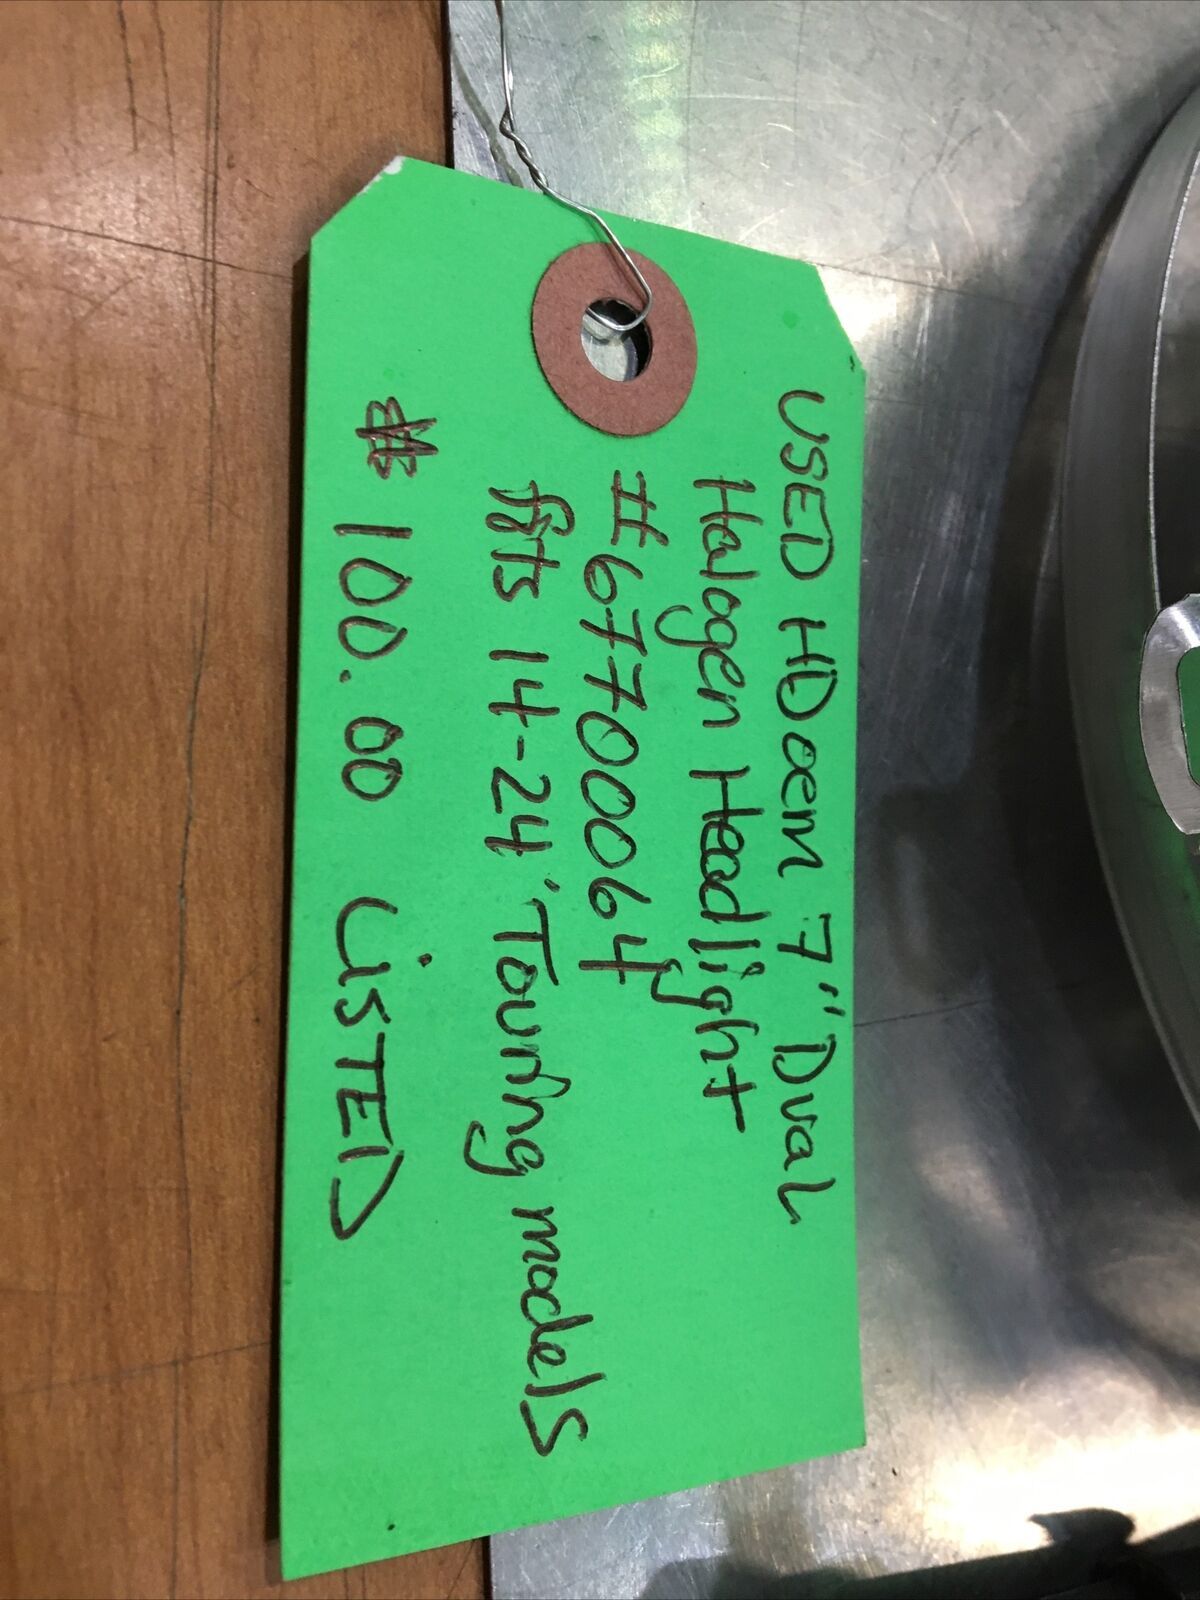 USED HD oem 7" Dual
Halogen Headlight
#67700064
fits 14-24' Touring models
$ 100.00 LiSTED